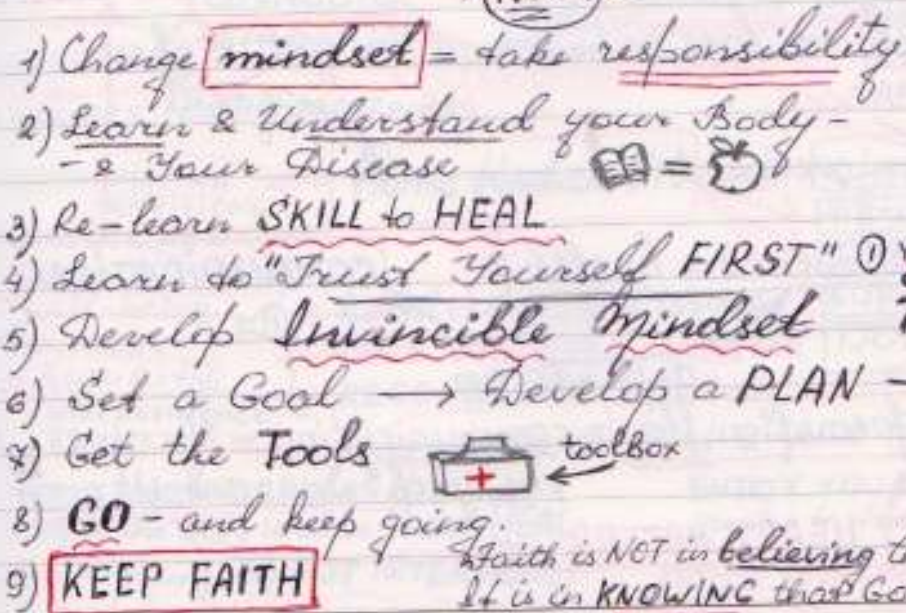 1) Change mindset = take responsibility
2) Learn & Understand your Body -
- & Your Disease
3) Re-learn SKILL to HEAL
4) Learn to "Trust Yourself FIRST" ①
5) Develop Invincible Mindset
6) Set a Goal → Develop a PLAN -
7) Get the Tools toolBox
8) GO - and keep going.
Faith is NOT in believing
9) KEEP FAITH It is in KNOWING that